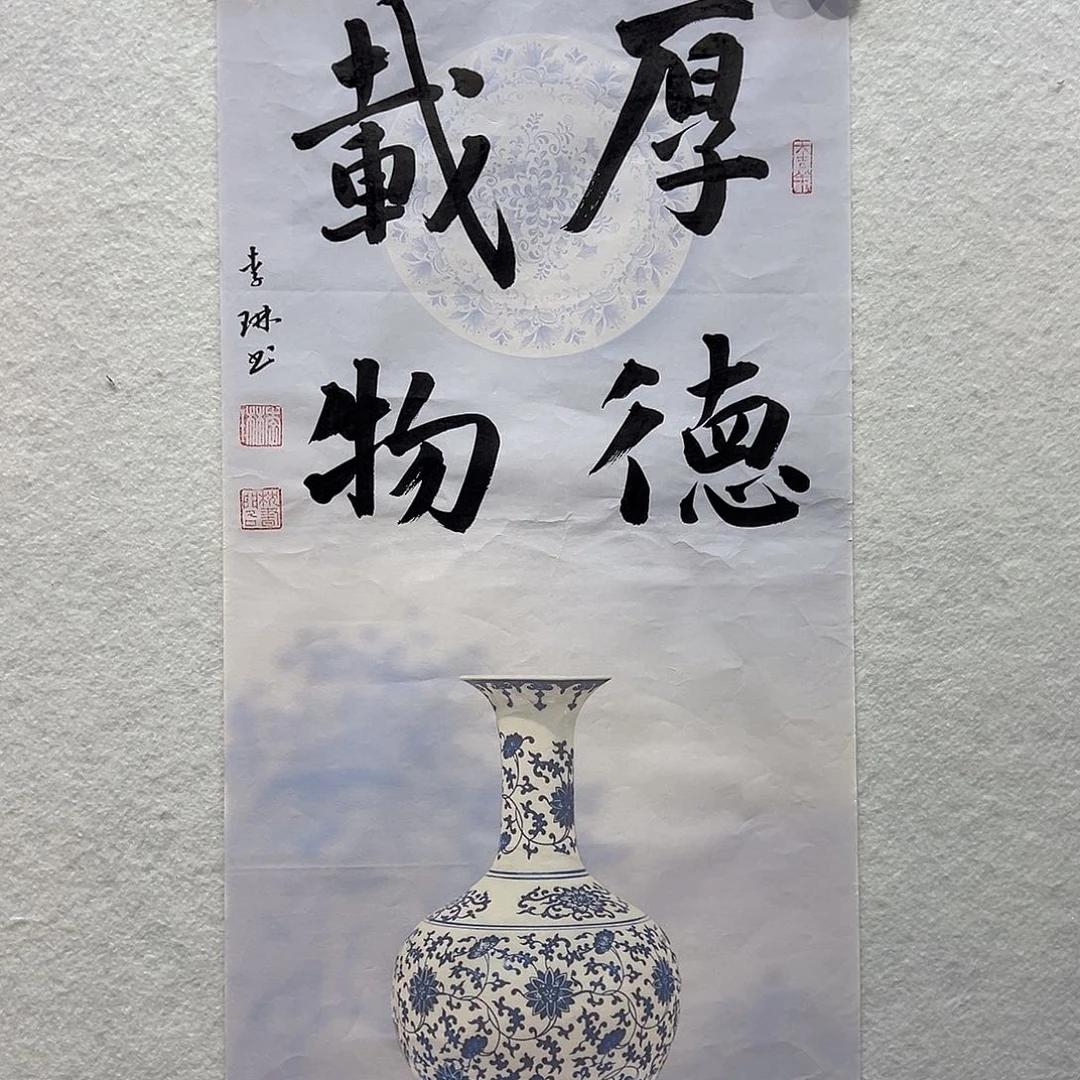 厚德
載物
李琳书